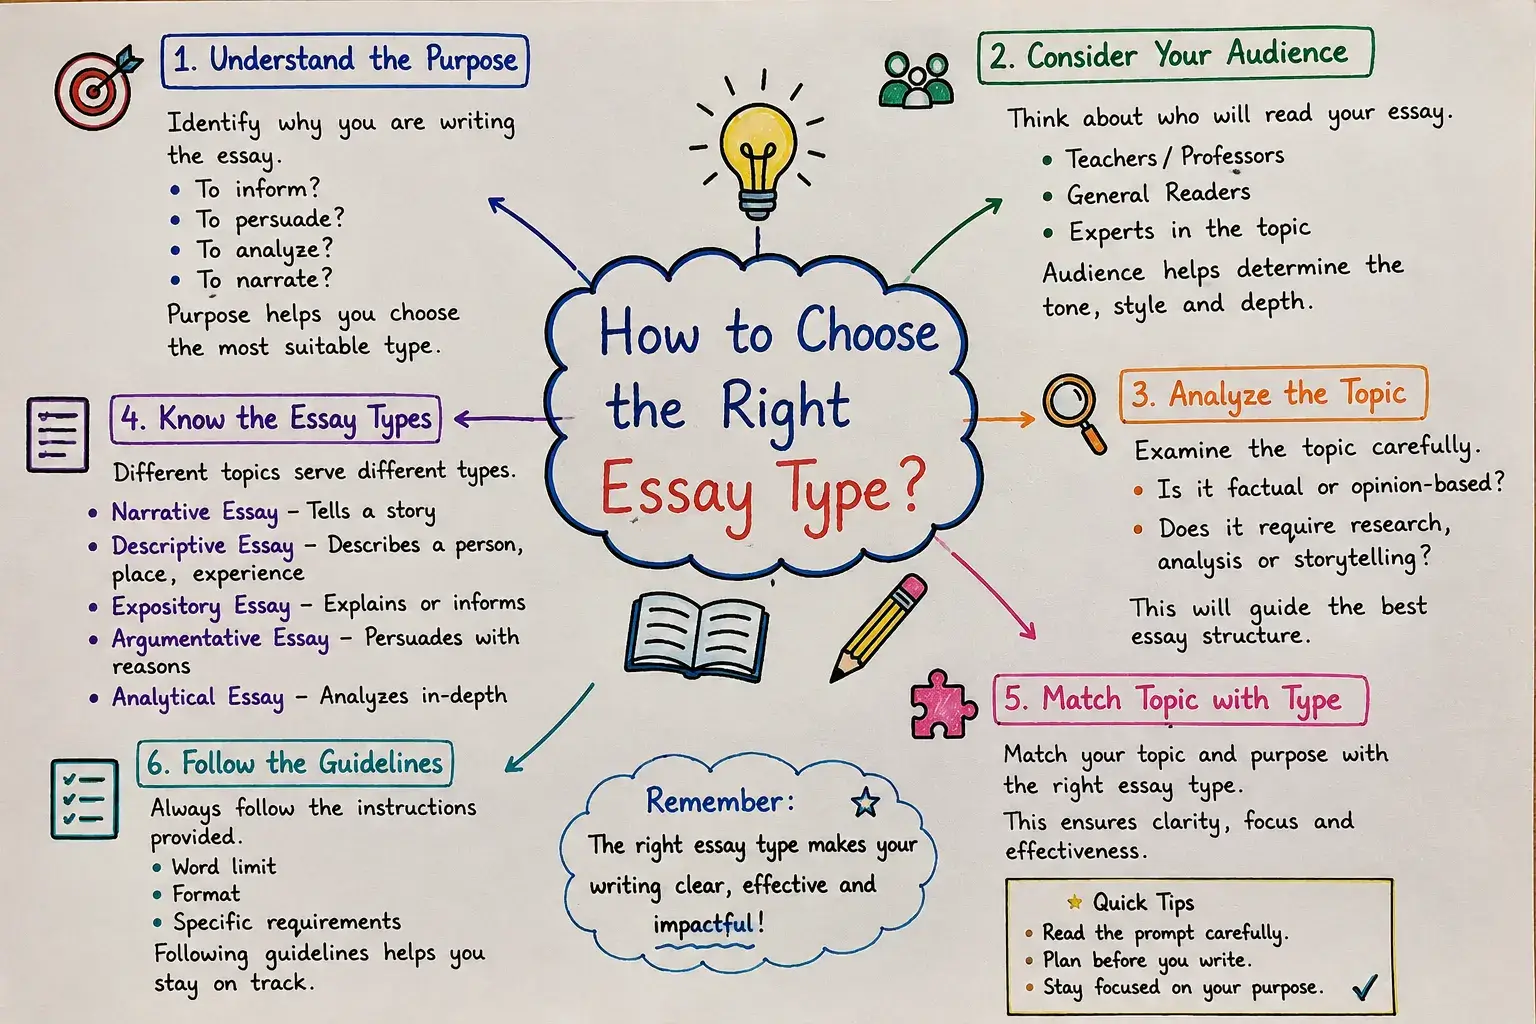 1. Understand the Purpose
Identify why you are writing
the essay.
• To inform?
• To persuade?
• To analyze?
• To narrate?
Purpose helps you choose
the most suitable type.
2. Consider Your Audience
Think about who will read your essay.
• Teachers / Professors
• General Readers
• Experts in the topic
Audience helps determine the
tone, style and depth.
How to Choose
the Right
Essay Type?
3. Analyze the Topic
Examine the topic carefully.
• Is it factual or opinion-based?
• Does it require research,
analysis or storytelling?
This will guide the best
essay structure.
4. Know the Essay Types
Different topics serve different types.
• Narrative Essay – Tells a story
• Descriptive Essay – Describes a person,
place, experience
• Expository Essay – Explains or informs
• Argumentative Essay – Persuades with
reasons
• Analytical Essay – Analyzes in-depth
5. Match Topic with Type
Match your topic and purpose with
the right essay type.
This ensures clarity, focus and
effectiveness.
6. Follow the Guidelines
Always follow the instructions
provided.
• Word limit
• Format
• Specific requirements
Following guidelines helps you
stay on track.
Remember:
The right essay type makes your
writing clear, effective and
impactful!
Quick Tips
• Read the prompt carefully.
• Plan before you write.
• Stay focused on your purpose.